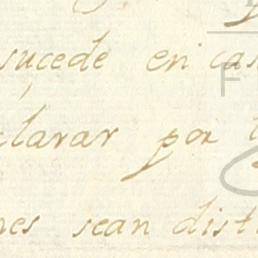 sucede en cas
clarar por
nes sean dist